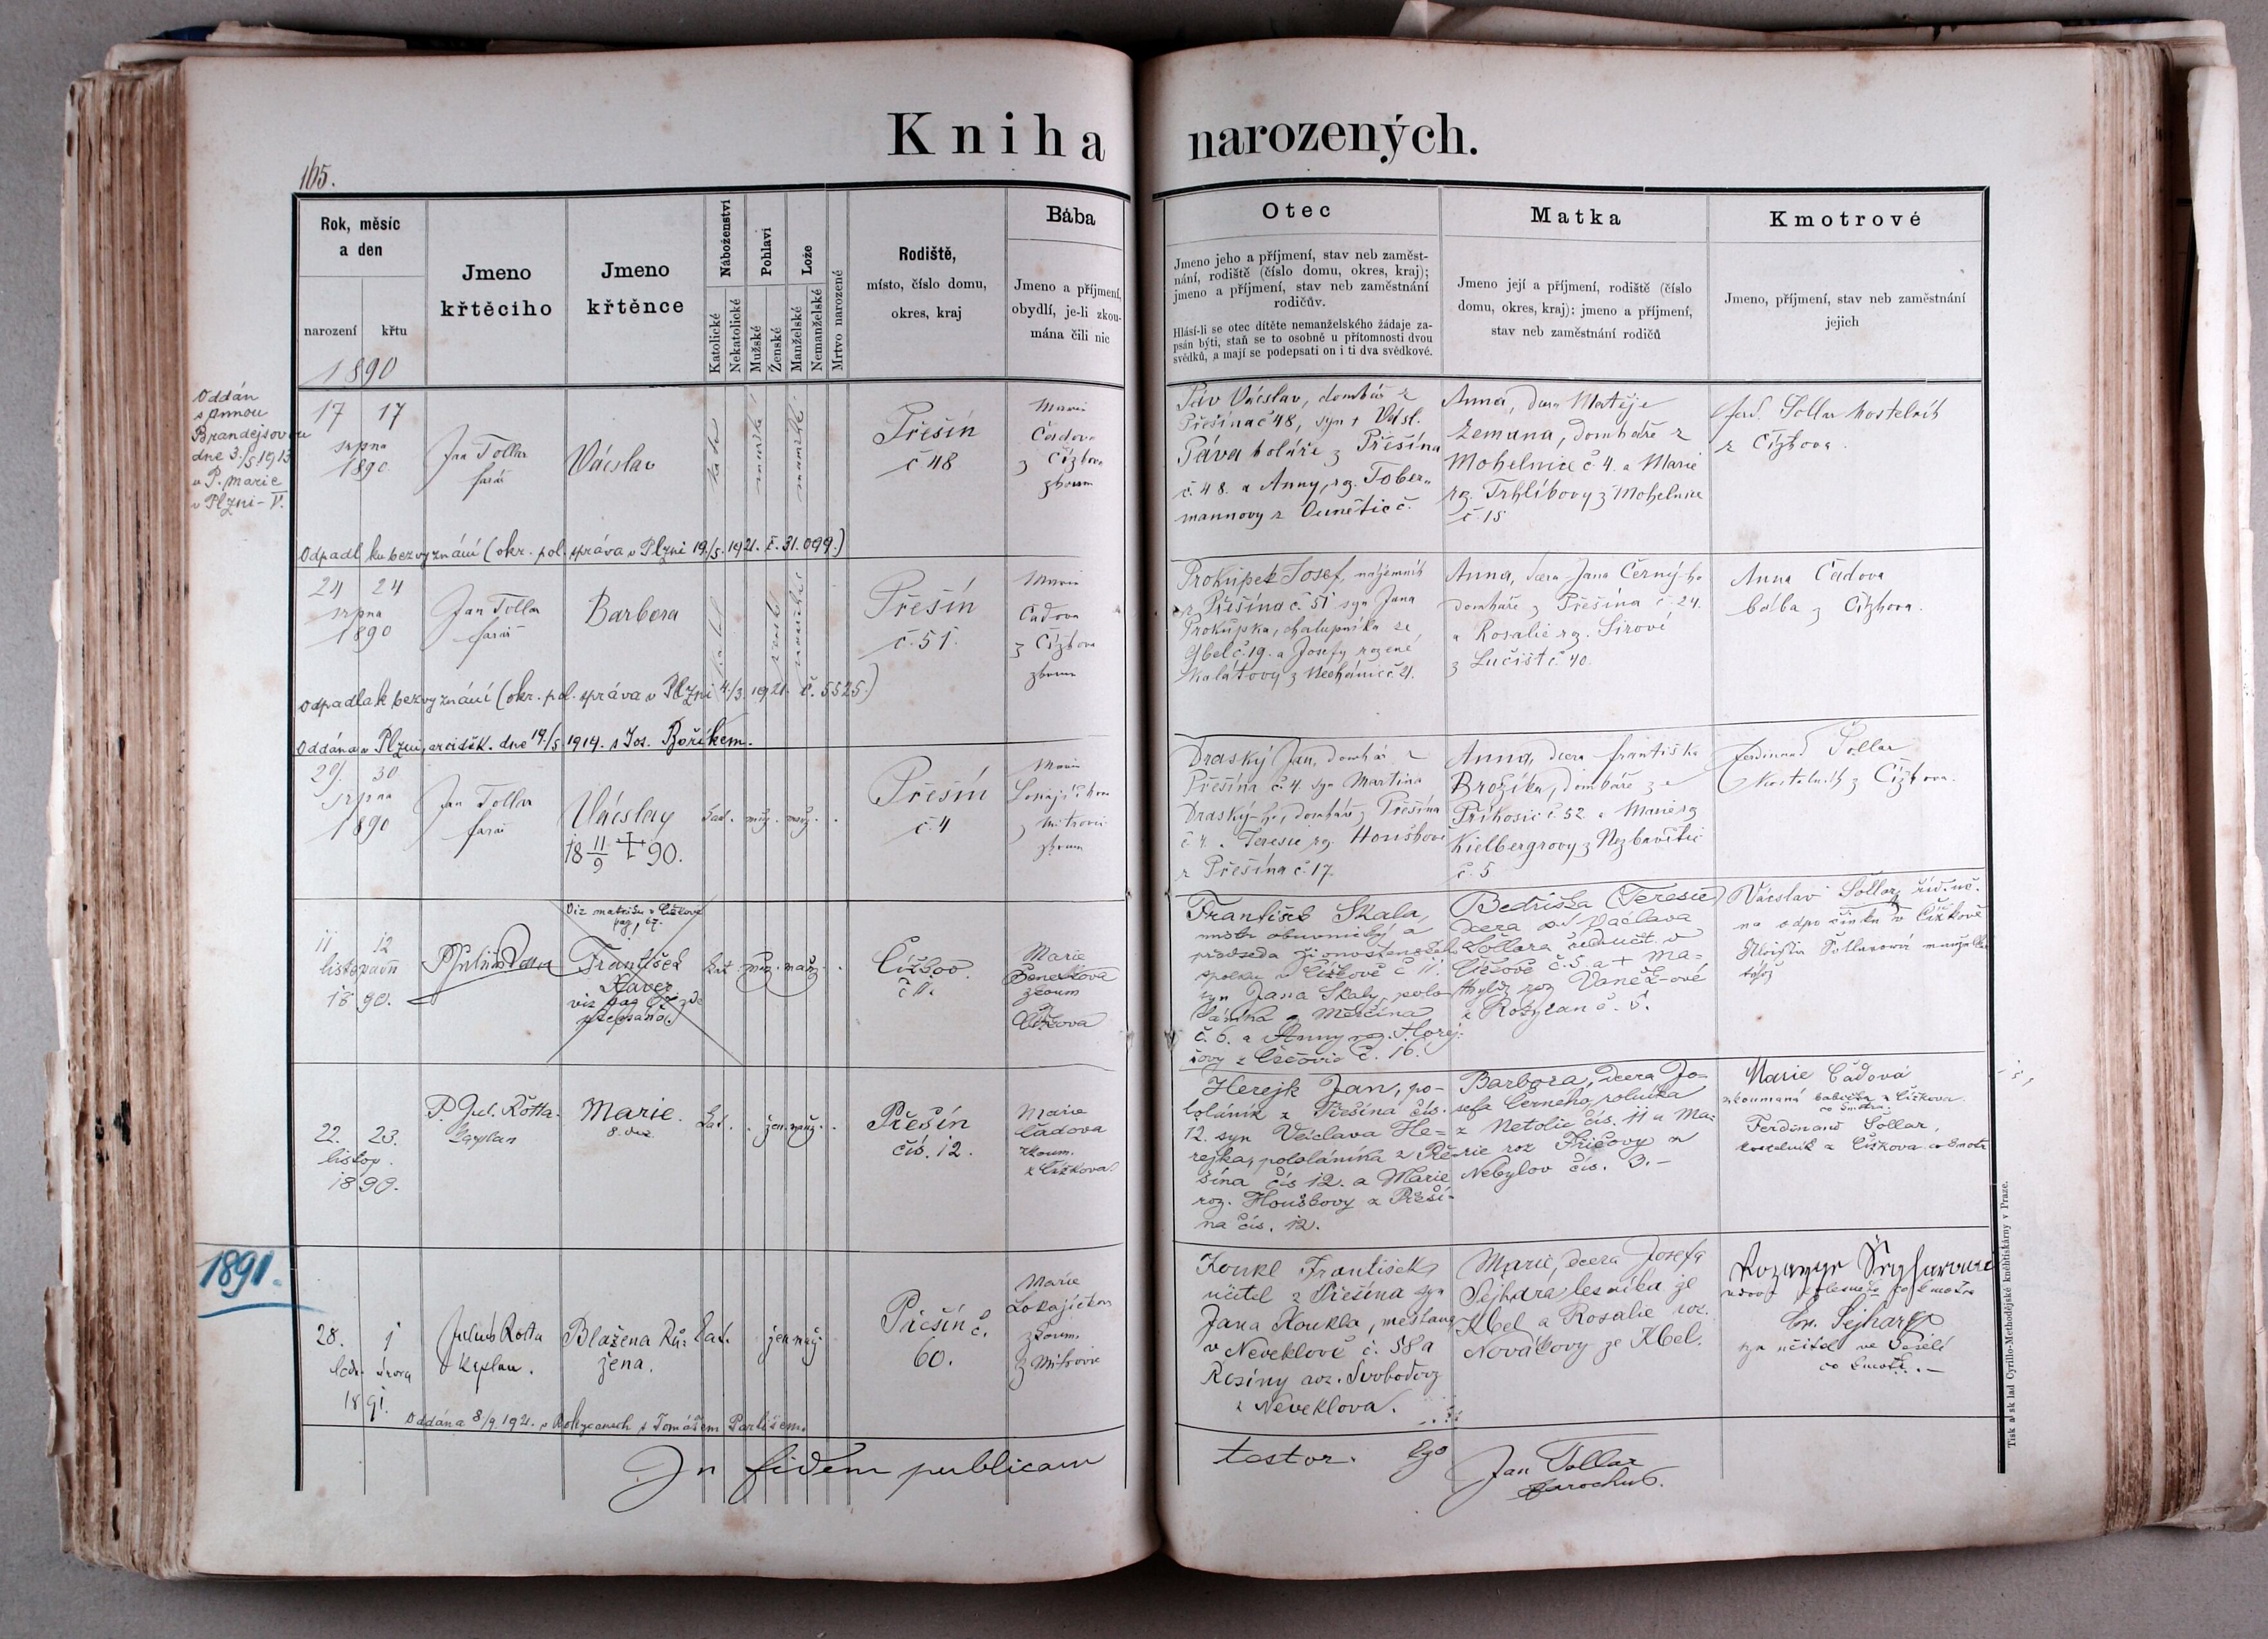 Kniha narozených.
165.
Rok, měsíc
a den
narození
křtu
Jmeno
křtěcího
Jmeno
křtěnce
Náboženství
Katolické
Nekatolické
Pohlaví
Mužské
Ženské
Lože
Manželské
Nemanželské
Mrtvo narozené
Rodiště,
místo, číslo domu,
okres, kraj
Bába
Jmeno a příjmení,
obydlí, je-li zkou-
mána čili nic
Otec
Jmeno jeho a příjmení, stav neb zaměst-
nání, rodiště (číslo domu, okres, kraj);
jmeno a příjmení, stav neb zaměstnání
rodičův.
Hlásí-li se otec dítěte nemanželského žádaje za-
psán býti, staň se to osobné u přítomnosti dvou
svědků, a mají se podepsati on i ti dva svědkové.
Matka
Jmeno její a příjmení, rodiště (číslo
domu, okres, kraj); jmeno a příjmení,
stav neb zaměstnání rodičů
Kmotrové
Jmeno, příjmení, stav neb zaměstnání
jejich
1890
Oddán
s Annou
Brandejsovou
dne 3./5. 1913
u P. Marie
v Plzni - V.
17 17
srpna
1890
Jan Tollar
farář
Václav
Přešín
č 48
Marie
Čadova
z Čížkova
zkoum
Páv Václav, domkář z
Přešína č 48, syn †
Páva koláře z Přešína
č. 48. a Anny, rz. Tober-
mannovy z
Anna, dcera Matěje
Zemana, domkáře z
Mohelnice č. 4. a Marie
rz. Trhlíkovy z Mohelnice
č. 15
Ferd. Sollar kostelník
z Čížkova.
Odpadl ku bezvyznání (okr. pol. správa v Plzni 19./5. 1921. č. 31.099.)
24 24
srpna
1890
Jan Tollar
farář
Barbora
Přešín
č. 51.
Marie
Čadova
z Čížkova
zkoum
Prokůpek Josef, nájemník
z Přešína č 51 syn Jana
Prokůpka, chalupníka ze
Kbel č. 19. a Josefy rozené
Skalátovy z
Anna, dcera Jana Černý-ho
domkáře z Přešína č. 24.
a Rosalie rz. Sirové
z Lučišť č 40.
Anna Čadova
bába z Čížkova.
Odpadla k bezvyznání (okr. pol. správa v Plzni 4./3. 1921. č. 5525.)
Oddána v Plzni, arciděk. dne 19./5. 1914. s Jos. Boříkem.
29. 30
srpna
1890
Jan Tollar
farář
Václav
18 11/9 † 90.
kat. muž. manž.
Přešín
č. 4
Marie
Lokajíčkova
z Mitrovic
zkoum
Draský Jan, domkář z
Přešína č. 4. syn Martina
Draský-ho, domkáře z Přešína
č 4. a Teresie rz. Houškové
z Přešína č. 17.
Anna, dcera Františka
Brožíka, domkáře ze
Příkosic č. 52 a Marie rz
Kielbergrovy z Nezbavětic
č. 5
Ferdinand Sollar
kostelník z Čížkova.
11 12
listopadu
1890.
Viz matriku v Čížkově
pag. 67.
František
Xaver
kat. muž. manž.
Čížkov.
č 11.
Marie
Benešova
zkoum
Čížkova
František Skala,
mistr obuvnický a
předseda živnostenského
spolku v Čížkově č 11.
syn Jana Skaly, polo-
láníka z Měrčína
č. 6. a Anny roz. Hořej-
šovy z č. 16.
Bedřiška (Teresie)
dcera p. Václava
Sollara řed. učit. v
Čížkově č. 5 a † Ma-
thyldy roz Vaněč-ové
z Rožmitalu č. 5.
Václav Sollar, říd. uč.
na odpočinku v Čížkově
Aloisia Sollarová manželka
téhož
22. 23.
listop.
1890.
P. Jul. Rotta.
kaplan
Marie.
kat. žen. manž.
Přešín
čís. 12.
Marie
Čadova
zkoum.
z Čížkova.
Herejk Jan, po-
loláník z Přešína čís.
12. syn Václava He-
rejka, pololáníka z Pře-
šína čís 12. a Marie
roz. Houškovy z Přeší-
na čís. 12.
Barbora, dcera Jo-
sefa Černého, rolníka
z Netolic čís. 11 a Ma-
rie roz Fricovy z
Nebylov čís. 3. -
Marie Čadová
zkoumaná babička z Čížkova
co kmotra.
Ferdinand Sollar,
kostelník z Čížkova co kmotr
1891.
28. 1
ledn. února
1891.
Julius Rotta
kaplan.
Blažena Rů-
žena.
kat. žen manž.
Přešín č.
60.
Marie
Lokajíčkova
zkoum.
z Mitrovic
Koukl František,
učitel z Přešína syn
Jana Koukla, měšťana
v Neveklově č. 58 a
Rosiny roz. Svobodovy
z Neveklova.
Marie, dcera Josefa
Sejhara lesníka ze
Kbel a Rosalie roz.
Novákovy ze Kbel.
Em. Sejhar
učitel ve Veselí
co kmotr. -
Oddána 8/9. 1921. v Rokycanech s Tomášem Partišem.
In fidem publicam testor. Ego Jan Tollar
parochus.
Tisk a sklad Cyrillo-Methodějské knihtiskárny v Praze.